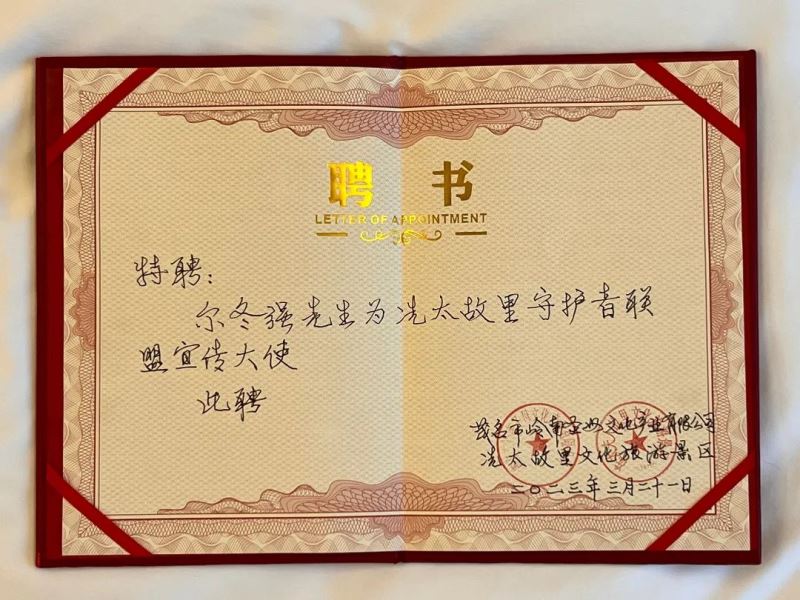 聘 书
LETTER OF APPOINTMENT
特聘：
尔冬强先生为冼太故里守护者联
盟宣传大使
此聘
茂名市岭南圣母文化产业有限公司
冼太故里文化旅游景区
二〇二三年三月二十一日